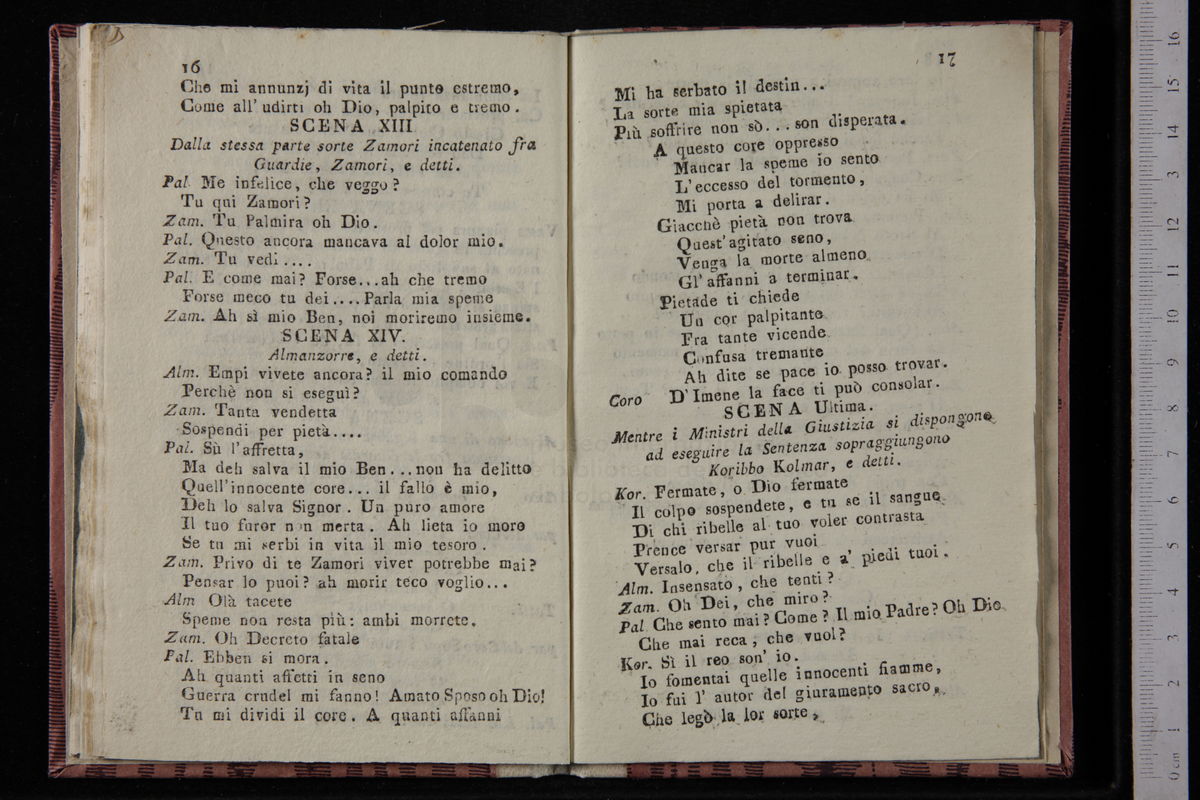 16
Che mi annunzj di vita il punto estremo,
Come all' udirti oh Dio, palpito e tremo.
SCENA XIII
Dalla stessa parte sorte Zamori incatenato fra
Guardie, Zamori, e detti.
Pal. Me infelice, che veggo?
Tu qui Zamori?
Zam. Tu Palmira oh Dio.
Pal. Questo ancora mancava al dolor mio.
Zam. Tu vedi....
Pal. E come mai? Forse...ah che tremo
Forse meco tu dei....Parla mia speme
Zam. Ah sì mio Ben, noi moriremo insieme.
SCENA XIV.
Almanzorre, e detti.
Alm. Empi vivete ancora? il mio comando
Perchè non si eseguì?
Zam. Tanta vendetta
Sospendi per pietà....
Pal. Sù l'affretta,
Ma deh salva il mio Ben...non ha delitto
Quell'innocente core... il fallo è mio,
Deh lo salva Signor. Un puro amore
Il tuo furor non merta. Ah lieta io moro
Se tu mi serbi in vita il mio tesoro.
Zam. Privo di te Zamori viver potrebbe mai?
Pensar lo puoi? ah morir teco voglio...
Alm Olà tacete
Speme non resta più: ambi morrete.
Zam. Oh Decreto fatale
Pal. Ebben si mora.
Ah quanti affetti in seno
Guerra crudel mi fanno! Amato Sposo oh Dio!
Tu mi dividi il core. A quanti affanni
17
Mi ha serbato il destin...
La sorte mia spietata
Più soffrire non sò...son disperata.
A questo core oppresso
Mancar la speme io sento
L'eccesso del tormento,
Mi porta a delirar.
Giacchè pietà non trova
Quest'agitato seno,
Venga la morte almeno
Gl' affanni a terminar.
Pietade ti chiede
Un cor palpitante
Fra tante vicende
Confusa tremante
Ah dite se pace io posso trovar.
Coro D'Imene la face ti può consolar.
SCENA Ultima.
Mentre i Ministri della Giustizia si dispongono
ad eseguire la Sentenza sopraggiungono
Koribbo Kolmar, e detti.
Kor. Fermate, o Dio fermate
Il colpo sospendete, e tu se il sangue
Di chi ribelle al tuo voler contrasta
Prence versar pur vuoi
Versalo, che il ribelle e a' piedi tuoi.
Alm. Insensato, che tenti?
Zam. Oh Dei, che miro?
Pal Che sento mai? Come? Il mio Padre? Oh Dio
Che mai reca, che vuol?
Kor. Sì il reo son' io.
Io fomentai quelle innocenti fiamme,
Io fui l' autor del giuramento sacro,
Che legò la lor sorte,
0 cm 1 2 3 4 5 6 7 8 9 10 11 12 13 14 15 16